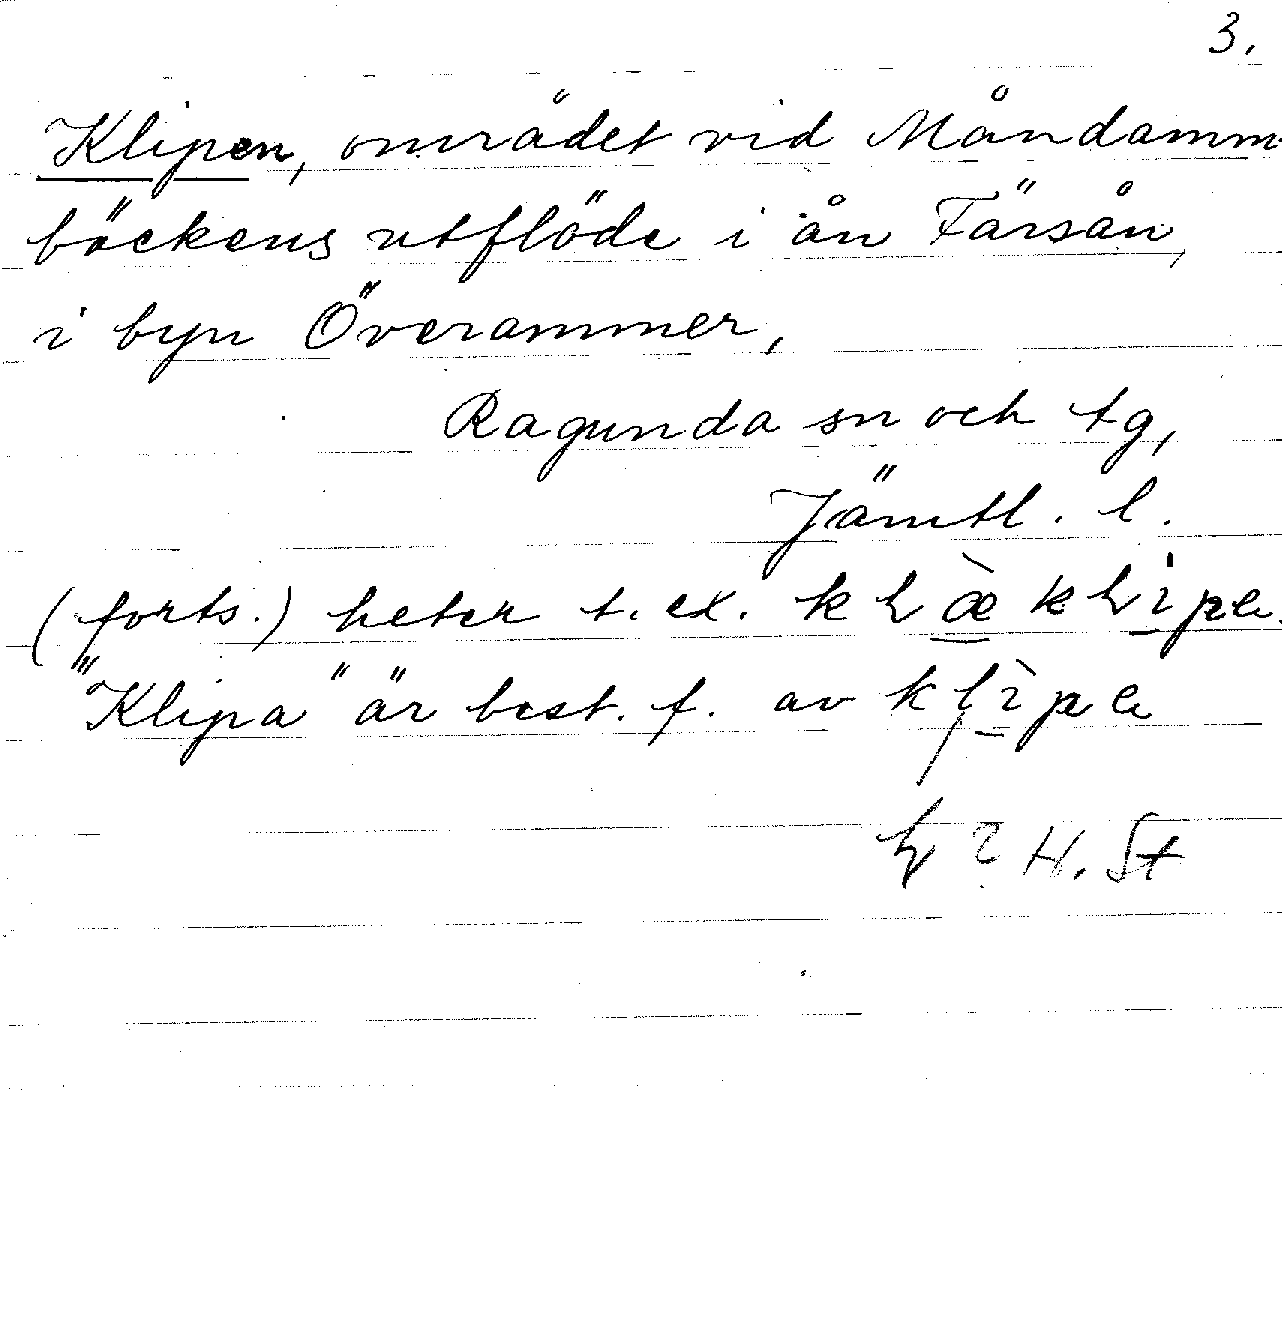 3.
Klipen, området vid Måndamm-
böckens utflöde i ån Färsån,
i byn Överammer,
Ragunda sn och tg,
Jämtl. l.
(forts.) heter t. ex.
"Klipa" är best. f. av
? H. St